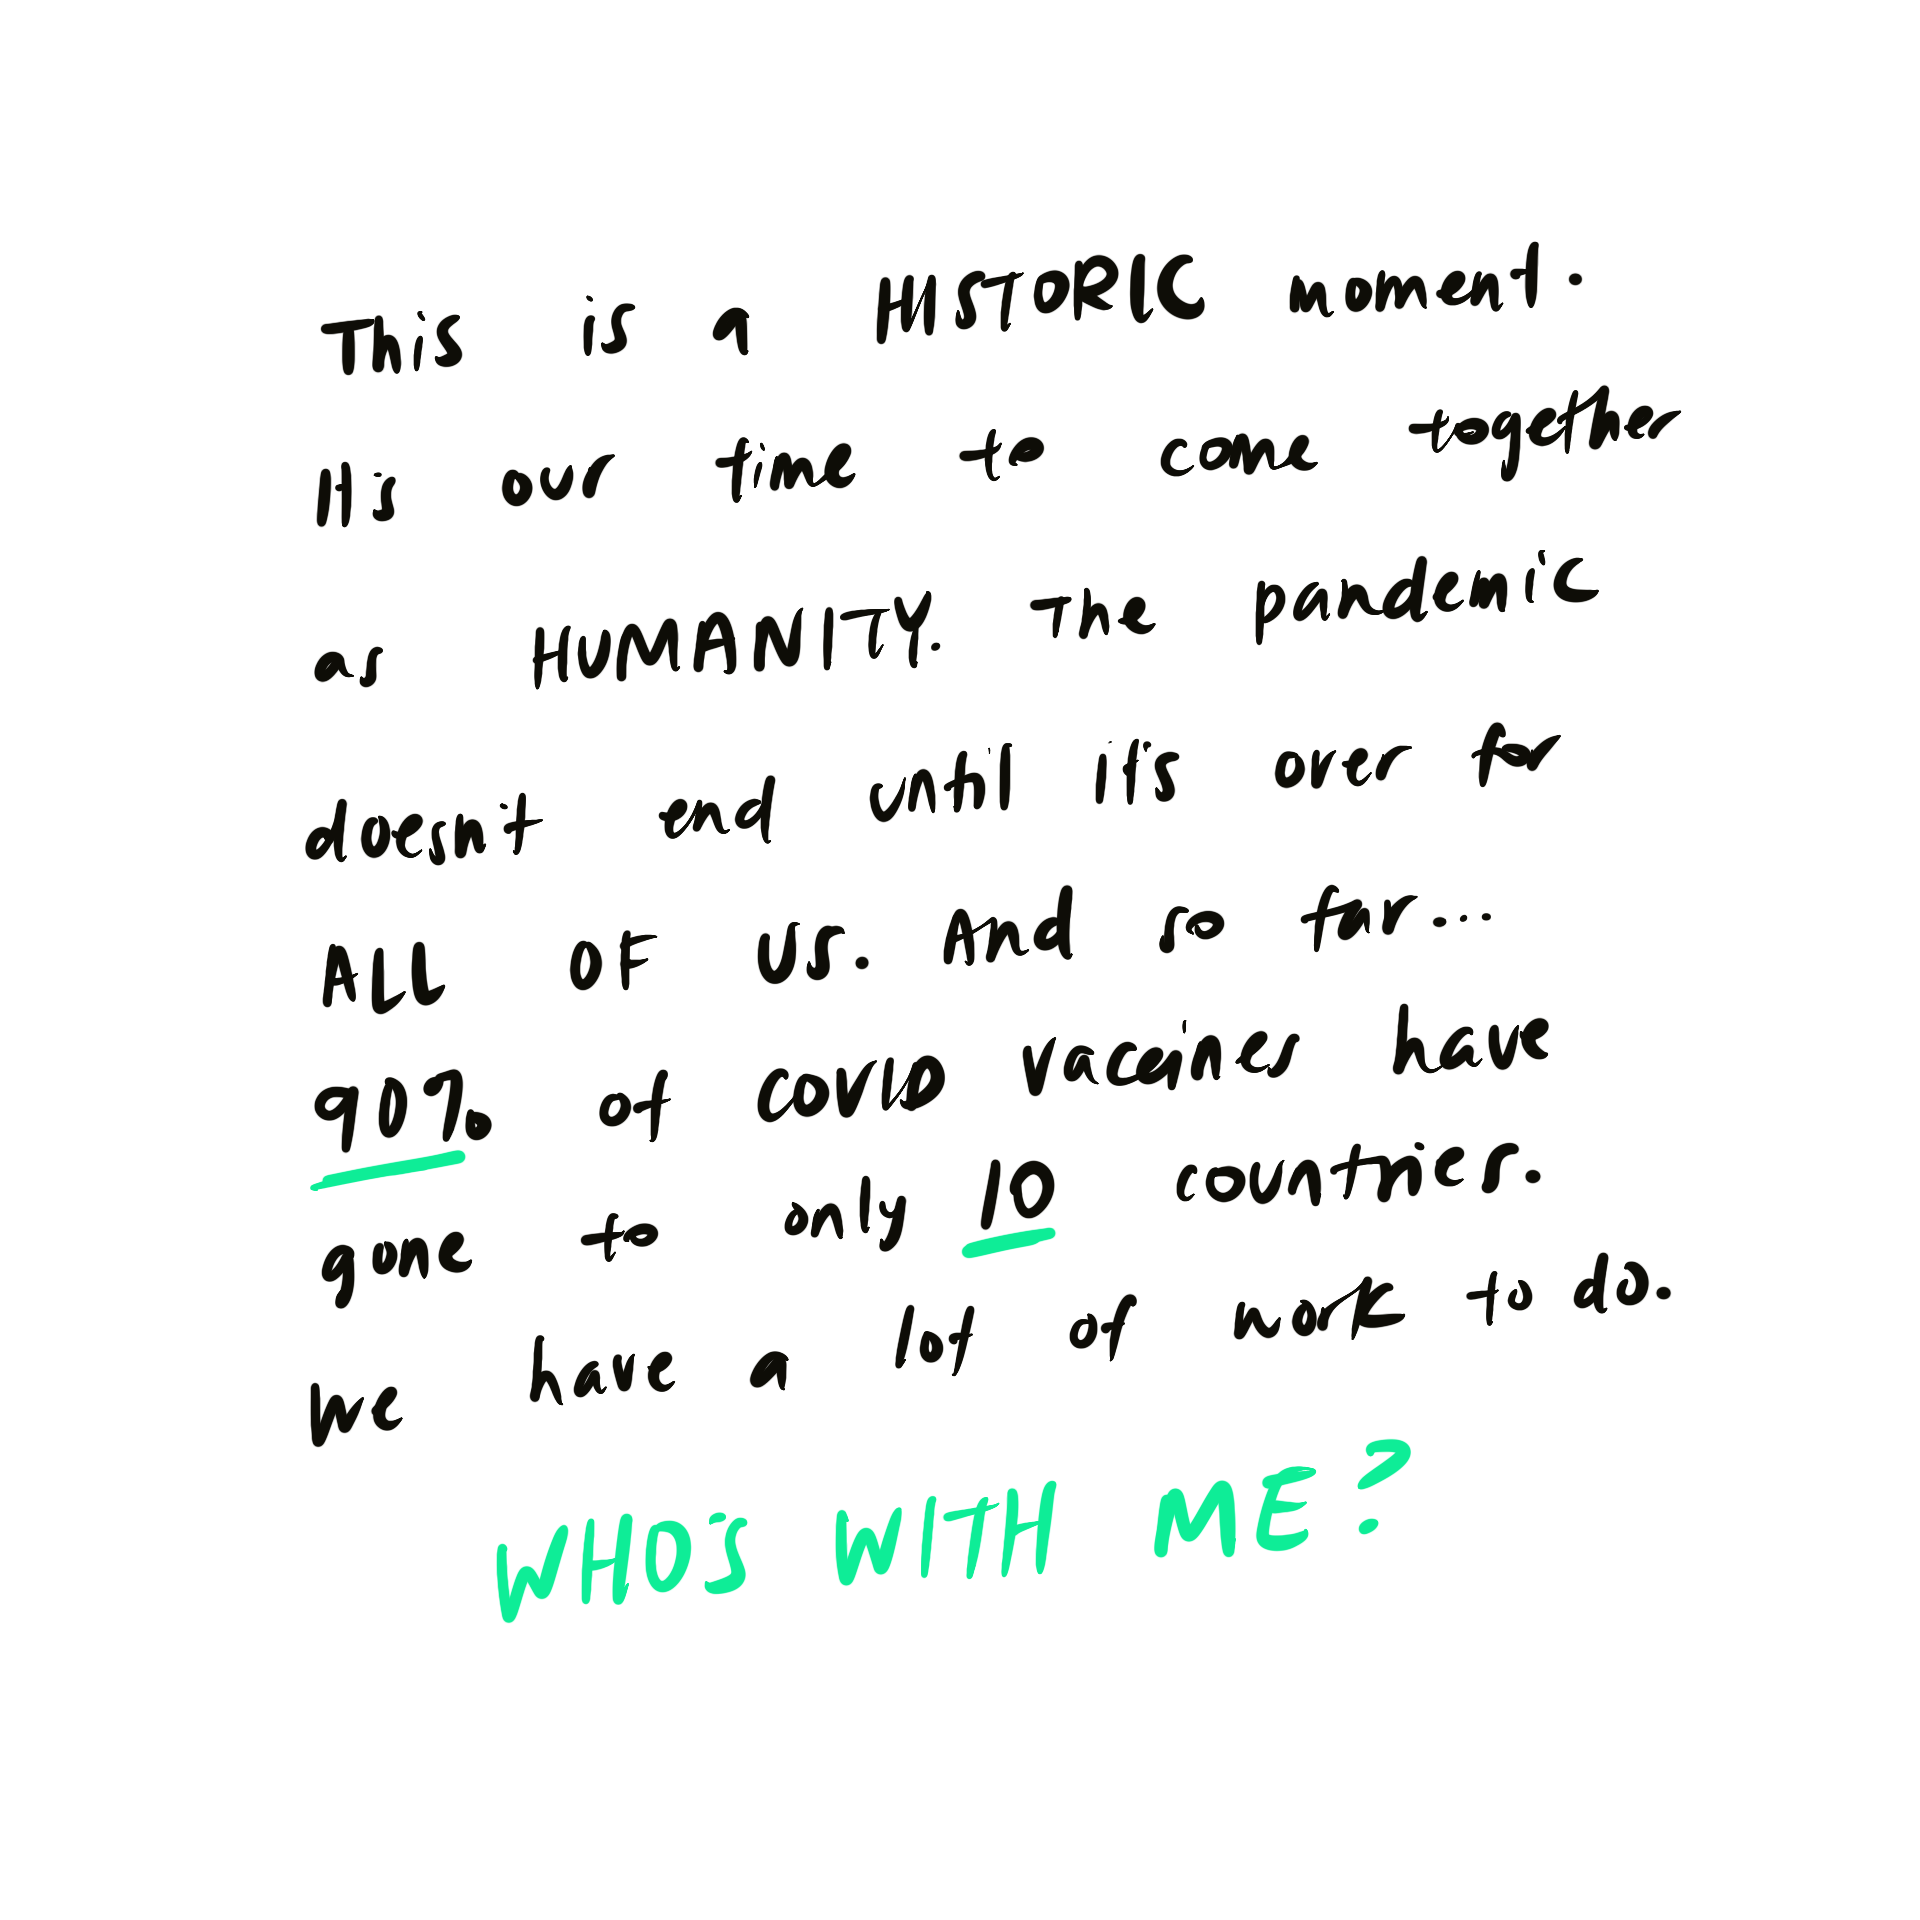 This is a HISTORIC moment.
Its our time to come together
as HUMANITY. The pandemic
doesn't end until it's over for
ALL OF US. And so far...
90% of COVID vaccines have
gone to only 10 countries.
We have a lot of work to do.
WHO'S WITH ME?